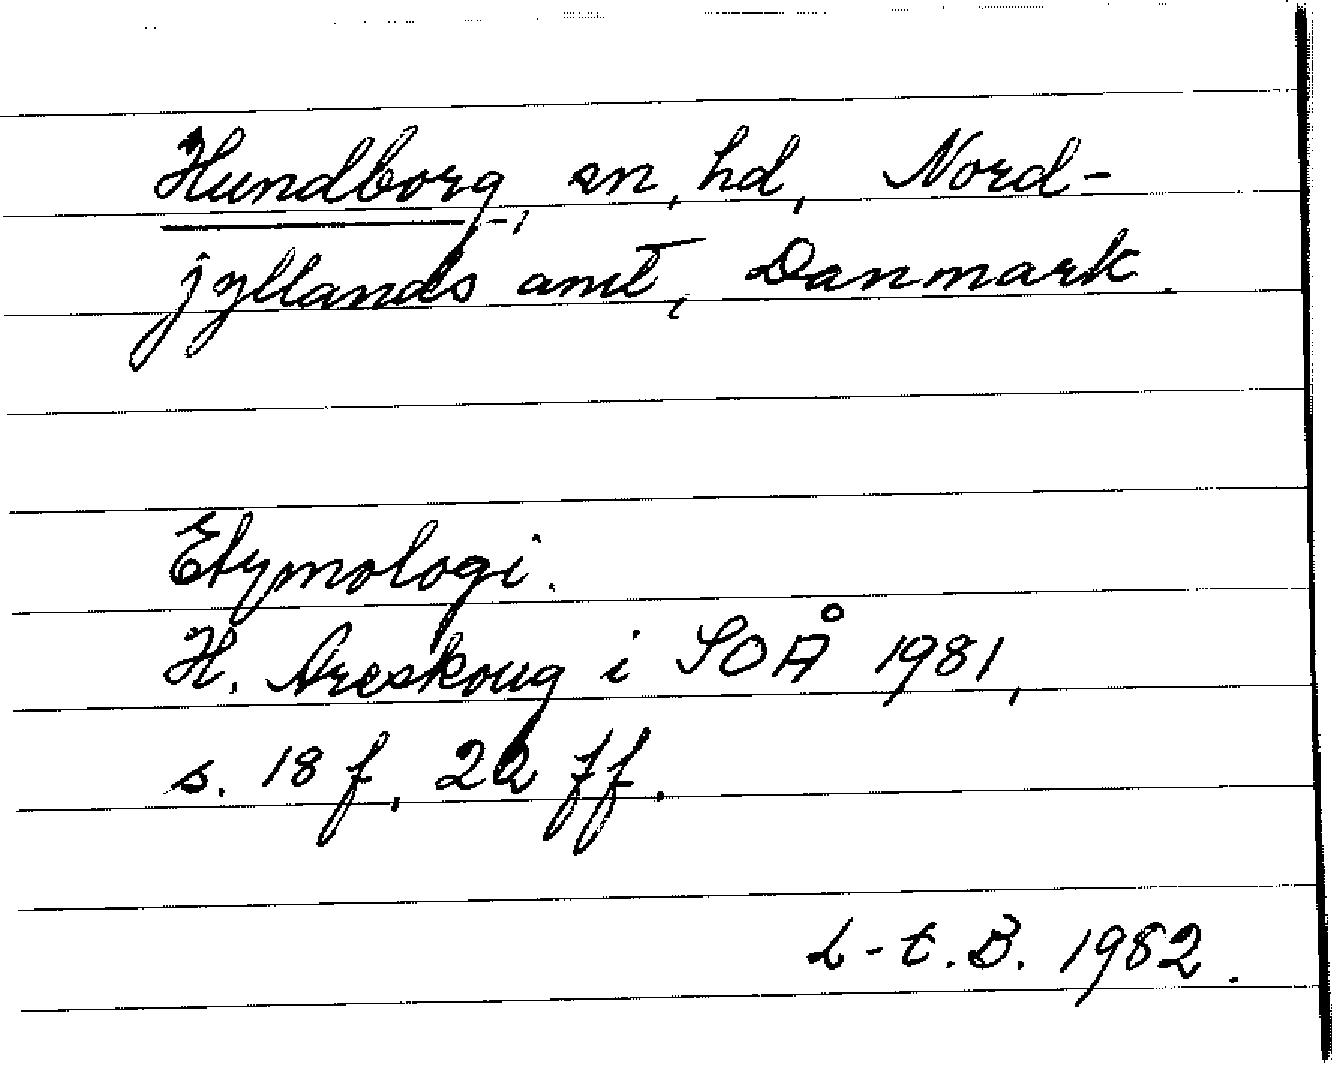 Hundborg, sn, hd, Nord-
jyllands amt, Danmark.
Etymologi.
H. Areskoug i SOÅ 1981,
s. 18 f, 22 ff.
L-t. B. 1982.